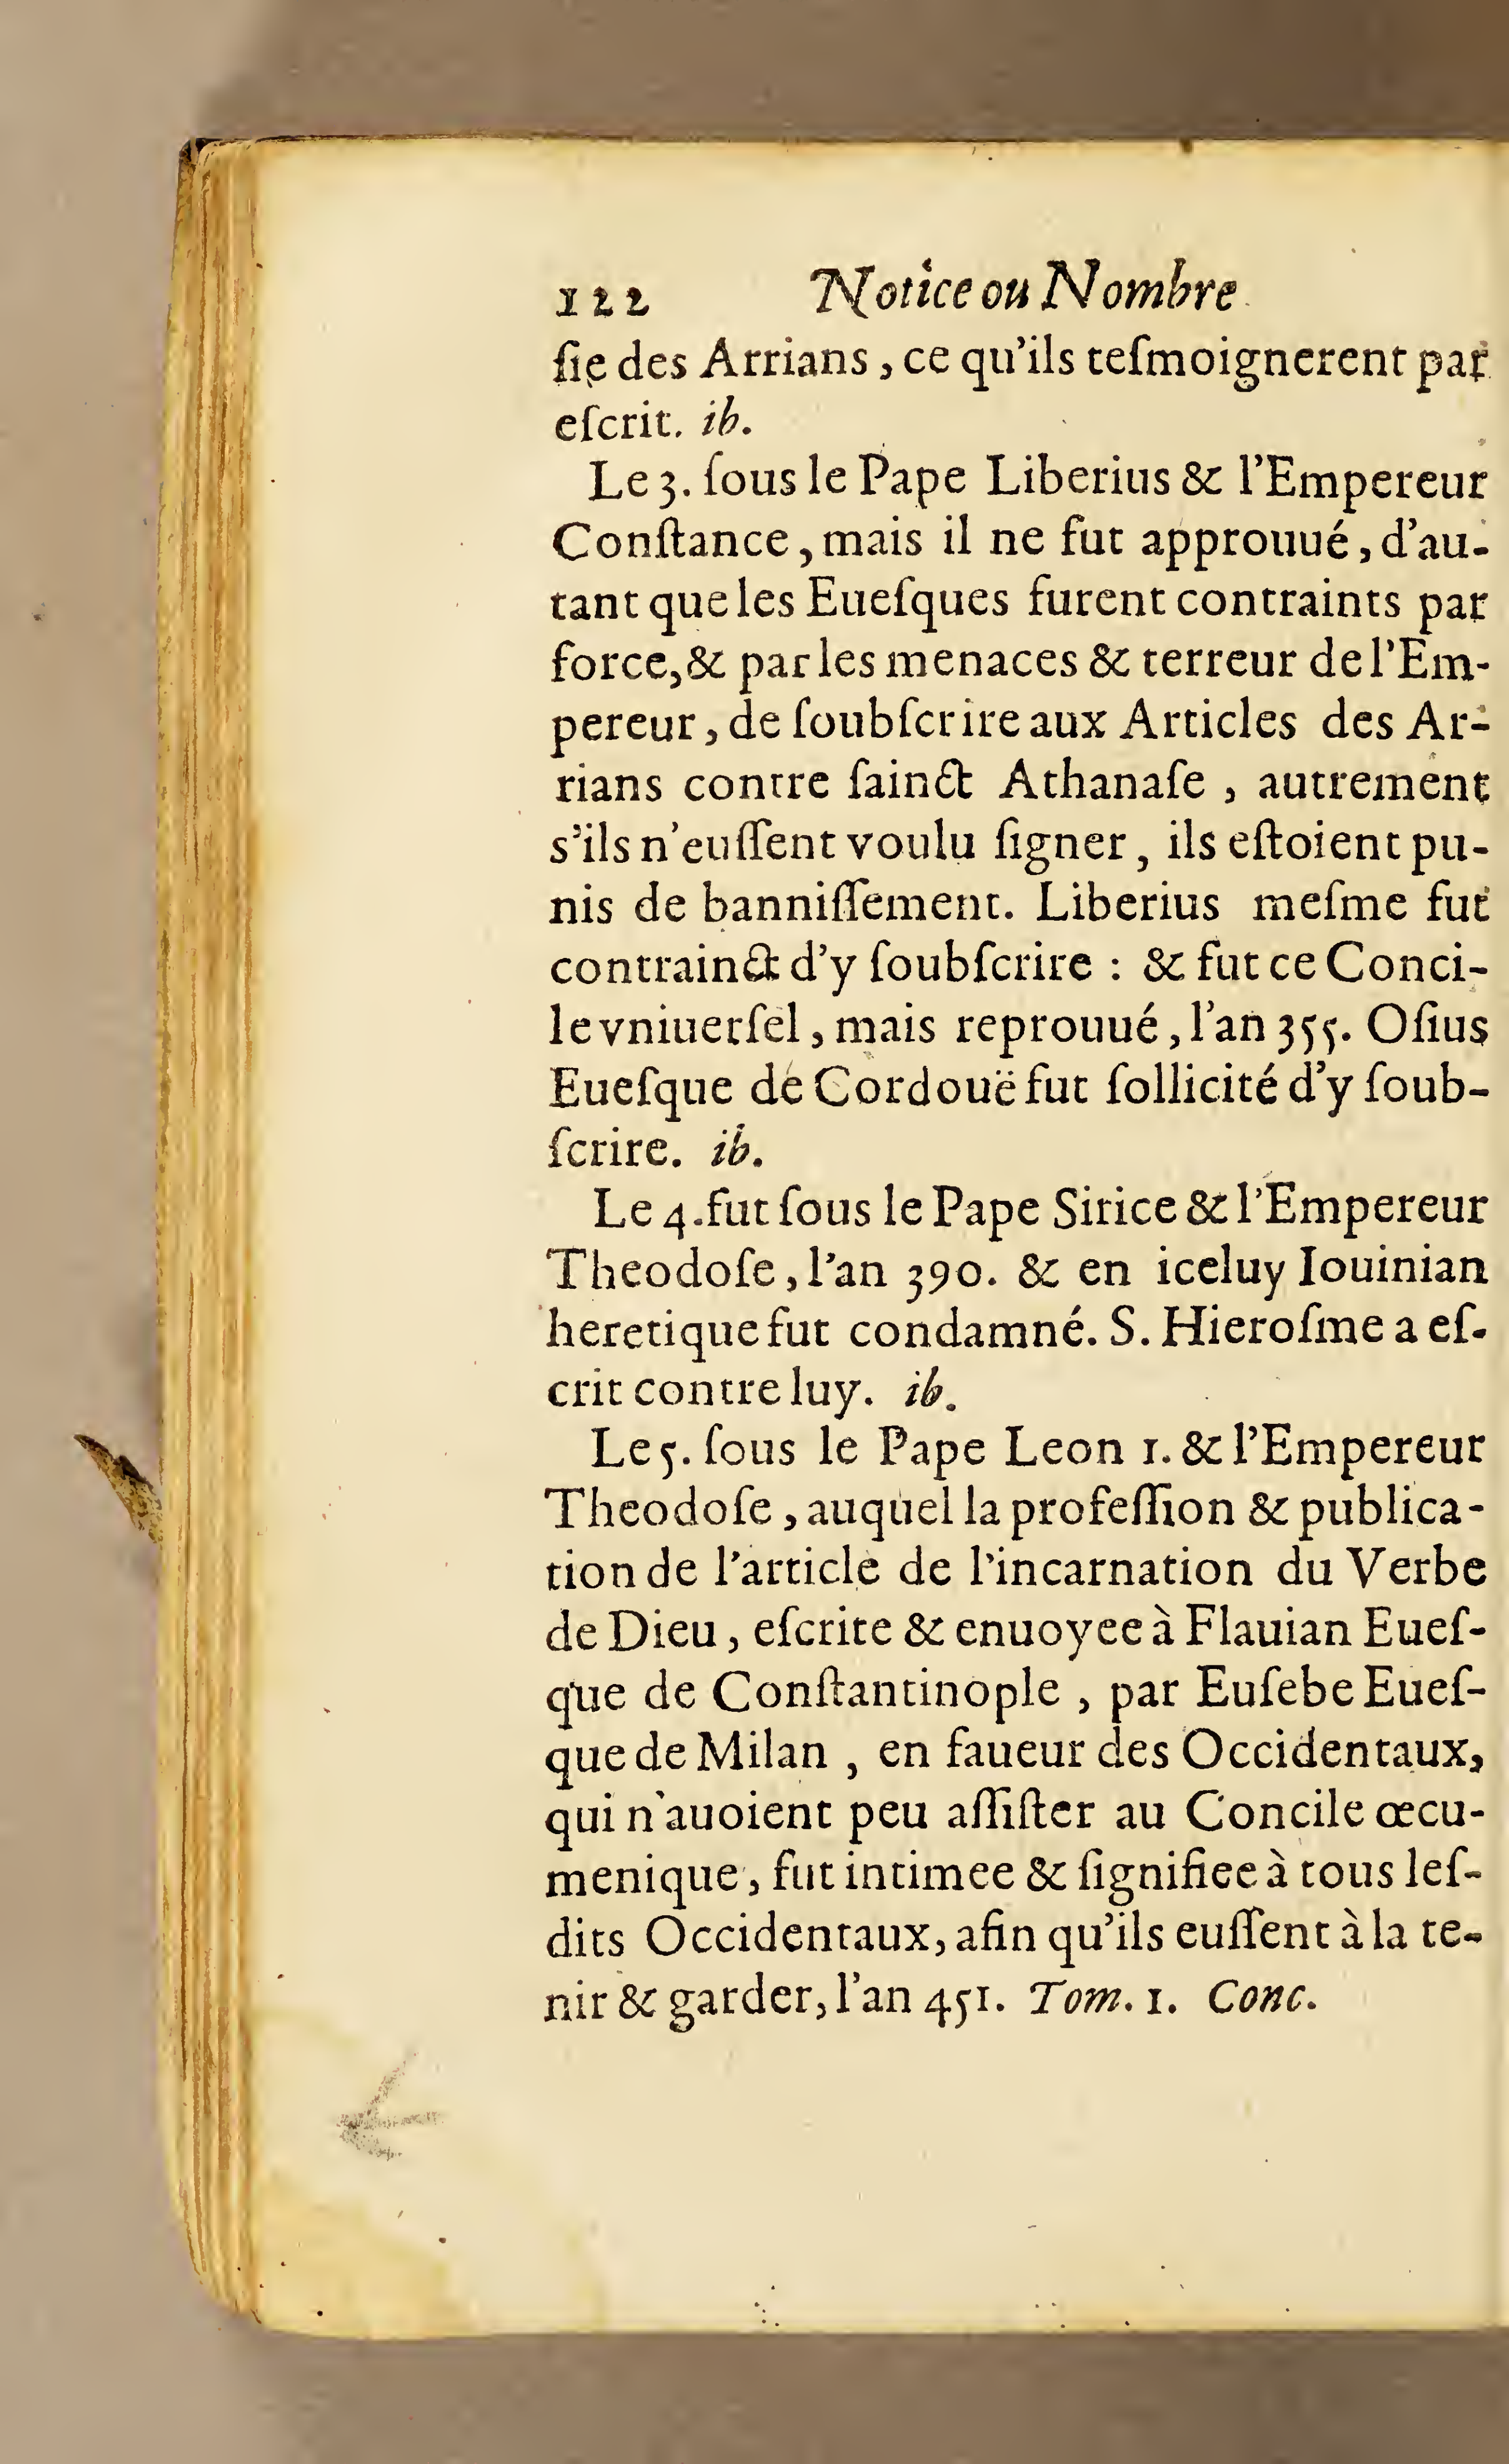 122 Notice ou Nombre
ſie des Arrians, ce qu'ils teſmoignerent par
eſcrit. ib.
Le 3. ſous le Pape Liberius & l'Empereur
Conſtance, mais il ne fut approuué, d'au-
tant que les Eueſques furent contraints par
force, & par les menaces & terreur de l'Em-
pereur, de ſoubſcrire aux Articles des Ar-
rians contre ſainct Athanaſe, autrement
s'ils n'euſſent voulu ſigner, ils eſtoient pu-
nis de banniſſement. Liberius meſme fut
contrainct d'y ſoubſcrire : & fut ce Conci-
le vniuerſel, mais reprouué, l'an 355. Oſius
Eueſque de Cordouë fut ſollicité d'y ſoub-
ſcrire. ib.
Le 4. fut ſous le Pape Sirice & l'Empereur
Theodoſe, l'an 390. & en iceluy Iouinian
heretique fut condamné. S. Hieroſme a eſ-
crit contre luy. ib.
Le 5. ſous le Pape Leon 1. & l'Empereur
Theodoſe, auquel la profeſſion & publica-
tion de l'article de l'incarnation du Verbe
de Dieu, eſcrite & enuoyee à Flauian Eueſ-
que de Conſtantinople, par Euſebe Eueſ-
que de Milan, en faueur des Occidentaux,
qui n'auoient peu aſſiſter au Concile œcu-
menique, fut intimee & ſignifiee à tous leſ-
dits Occidentaux, afin qu'ils euſſent à la te-
nir & garder, l'an 451. Tom. 1. Conc.